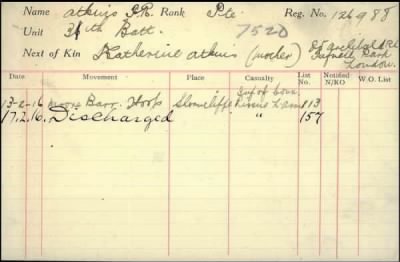 Name Atkins F.R. Rank Pte. Reg. No. 126988
Unit 36th Batt. 7520
Next of Kin Katherine Atkins (mother) 85 Archibald Rd
Tufnell Park
London.
Date Movement Place Casualty List No. Notified N/KO W.O. List
13-2-16 Moore Barr. Hosp Shorncliffe 113
17.2.16. Discharged " " 157